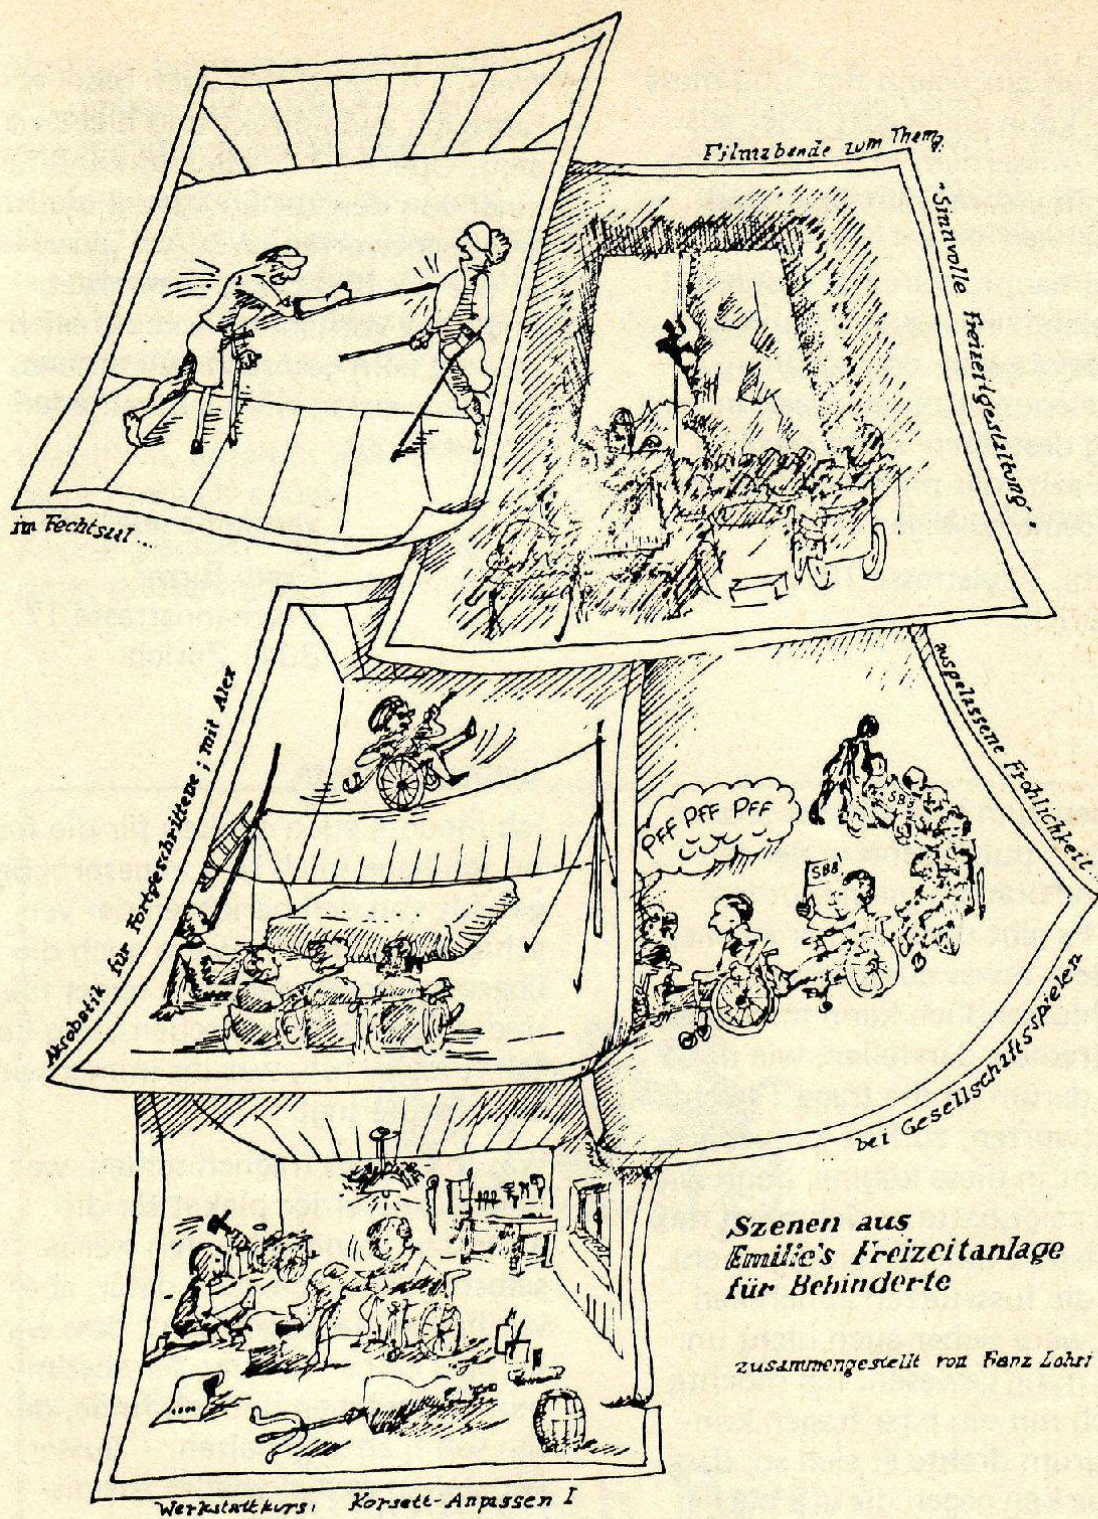 im Fechtsaal...
Filmabende zum Thema:
"Sinnvolle Freizeitgestaltung"
Akrobatik für Fortgeschrittene; mit Alex
PFF PFF PFF
SBB
SBB
ausgelassene Fröhlichkeit...
bei Gesellschaftsspielen
Werkstattkurs: Korsett-Anpassen I
Szenen aus
Emilie's Freizeitanlage
für Behinderte
zusammengestellt von Franz Lohri